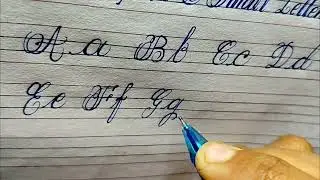 Small Letter
A a B b C c D d
E e F f G g